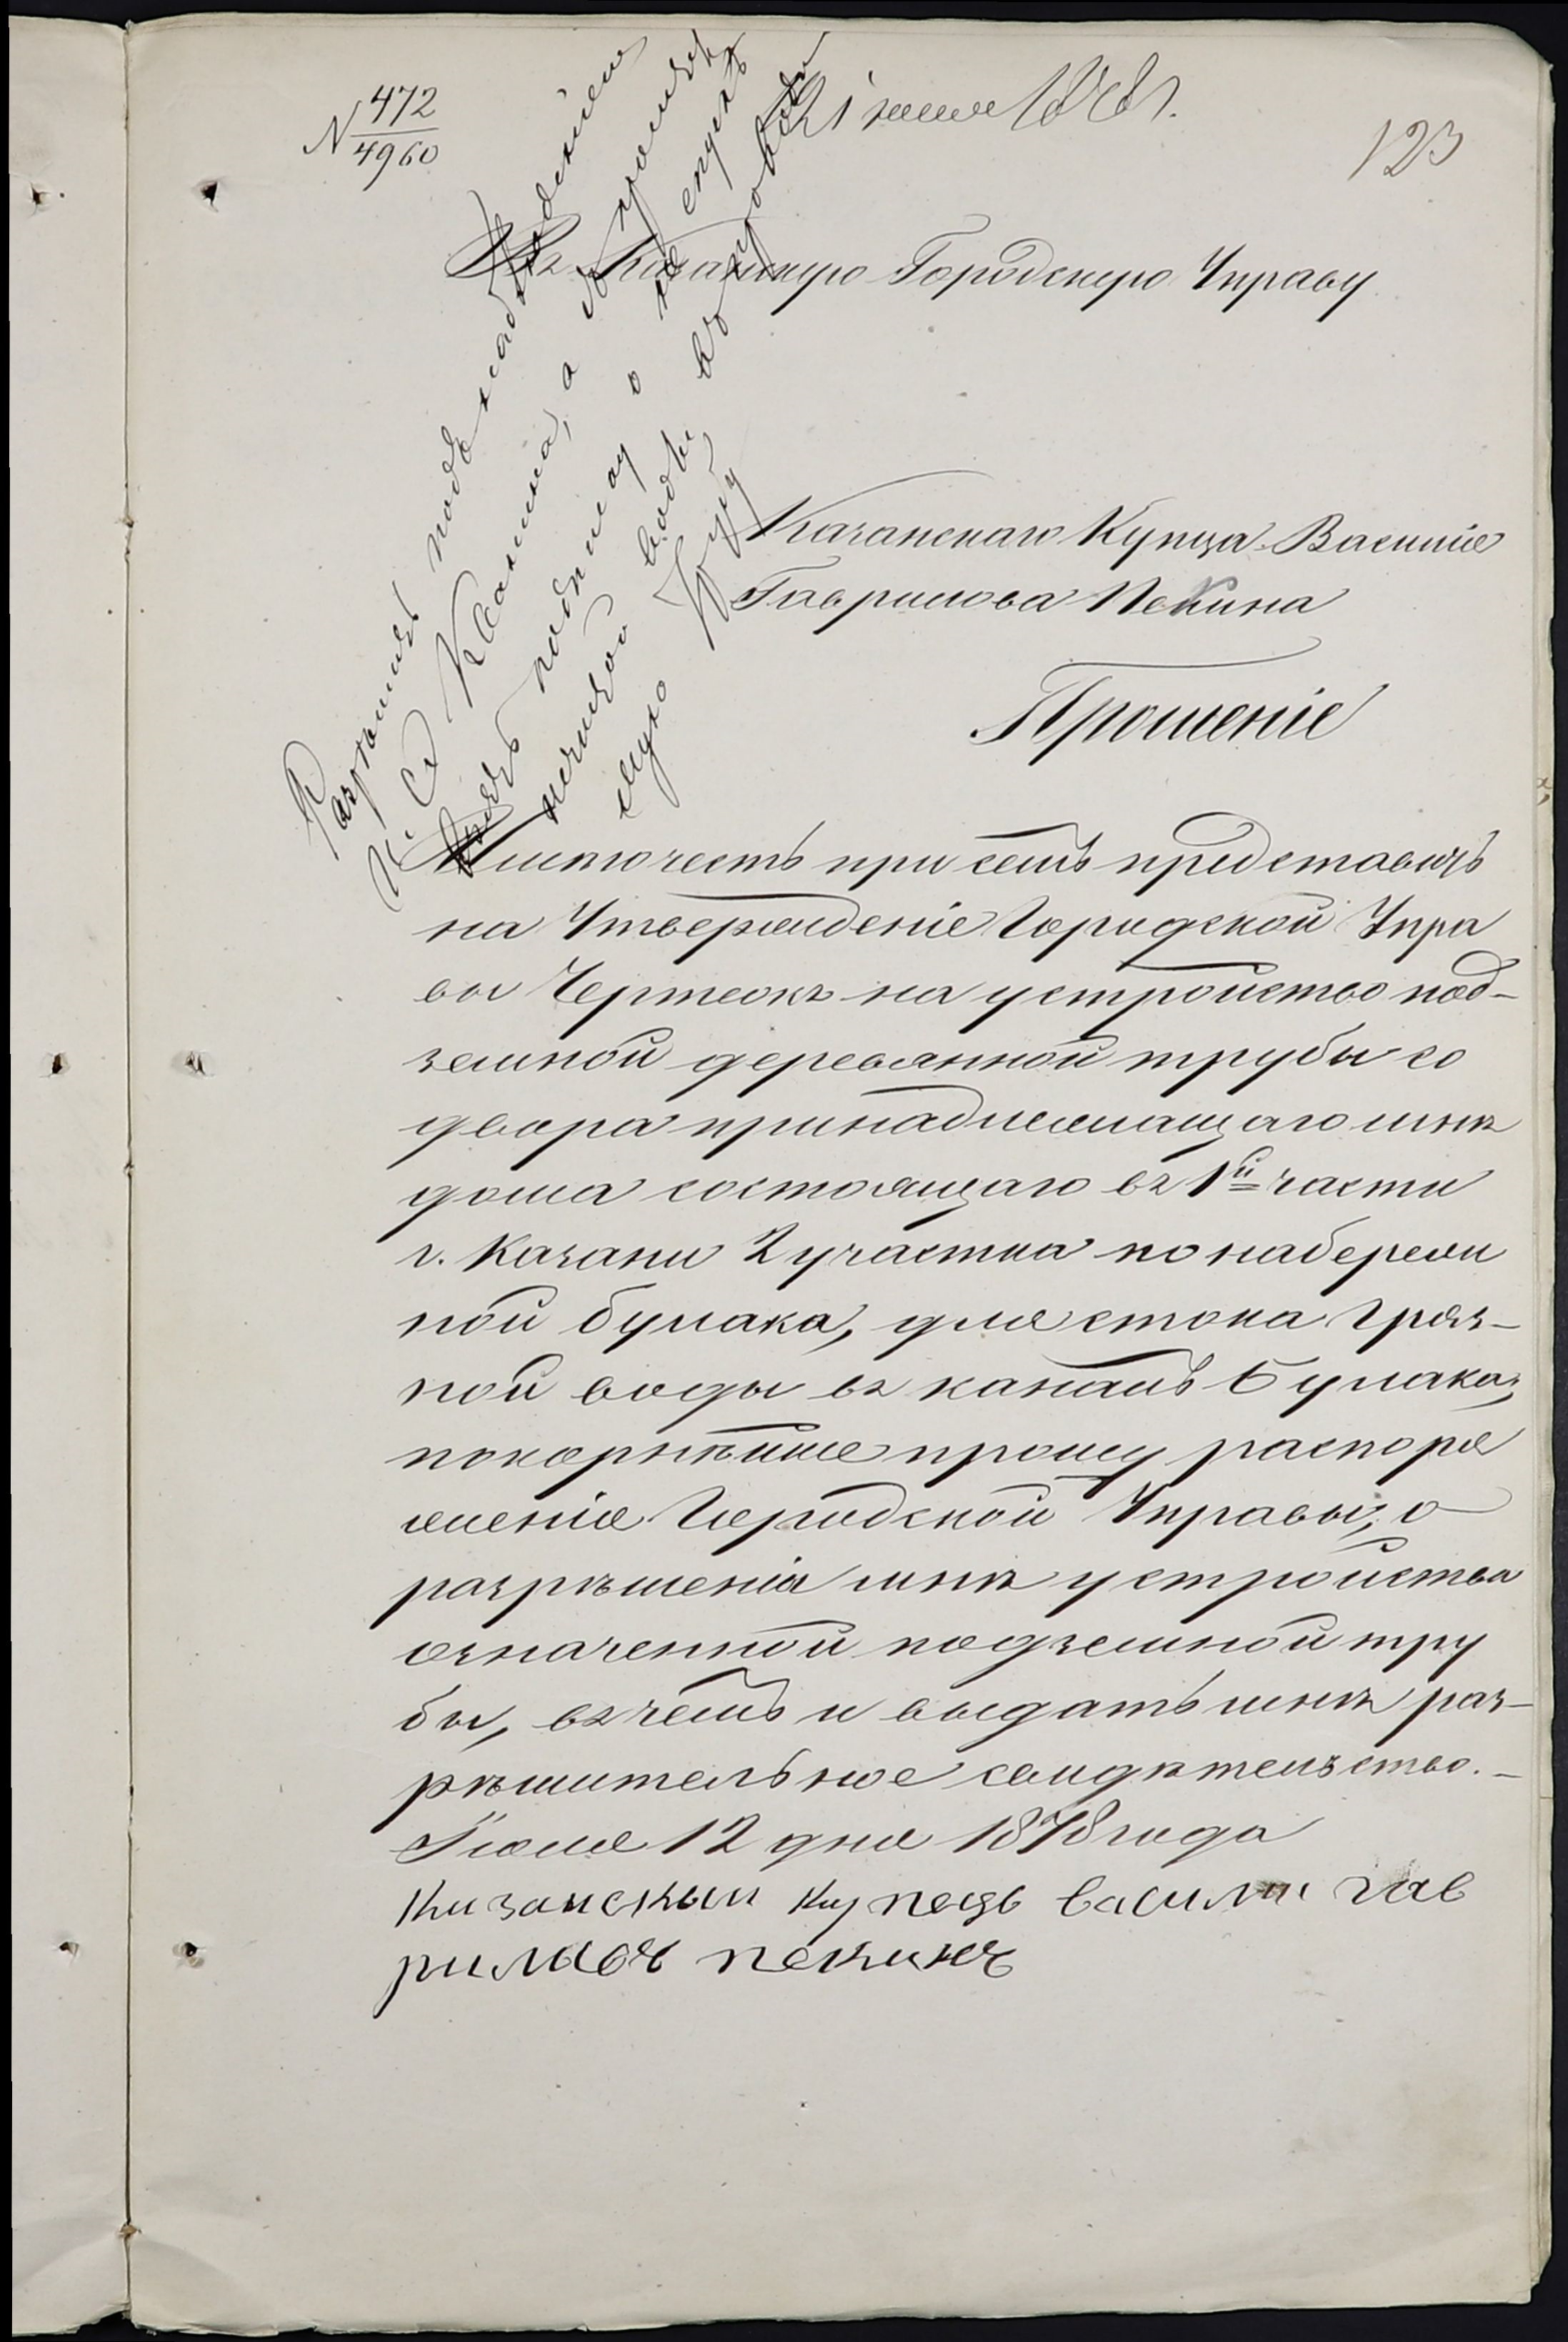 N 472/4960
21 июля 1878 г.
123
Въ Казанскую Городскую Управу
Казанскаго Купца Василия
Гаврилова Пекина
Прошеніе
Разрешить подъ наблюденіем
П. С. а у просителя
взять подписку о не спускѣ
нечистой воды въ проводи
мую трубу
Имѣю честь при семъ представить
на Утвержденіе Городской Упра
вы Чертежъ на устройство под-
земной деревянной трубы со
двора принадлежащаго мнѣ
дома состоящаго въ 1й части
г. Казани 2 участка по набереж
ной булака, для стока гряз-
ной воды въ каналъ Булака,
покорнѣйше прошу распоря
женія Городской Управы, о
разрѣшеніи мнѣ устройства
означенной подземной тру
бы, въ чемъ и выдать мнѣ раз-
рѣшительное свидѣтельство.-
Іюля 12 дня 1878 года
Казанскьи купецъ васили гав
риловъ пекинъ